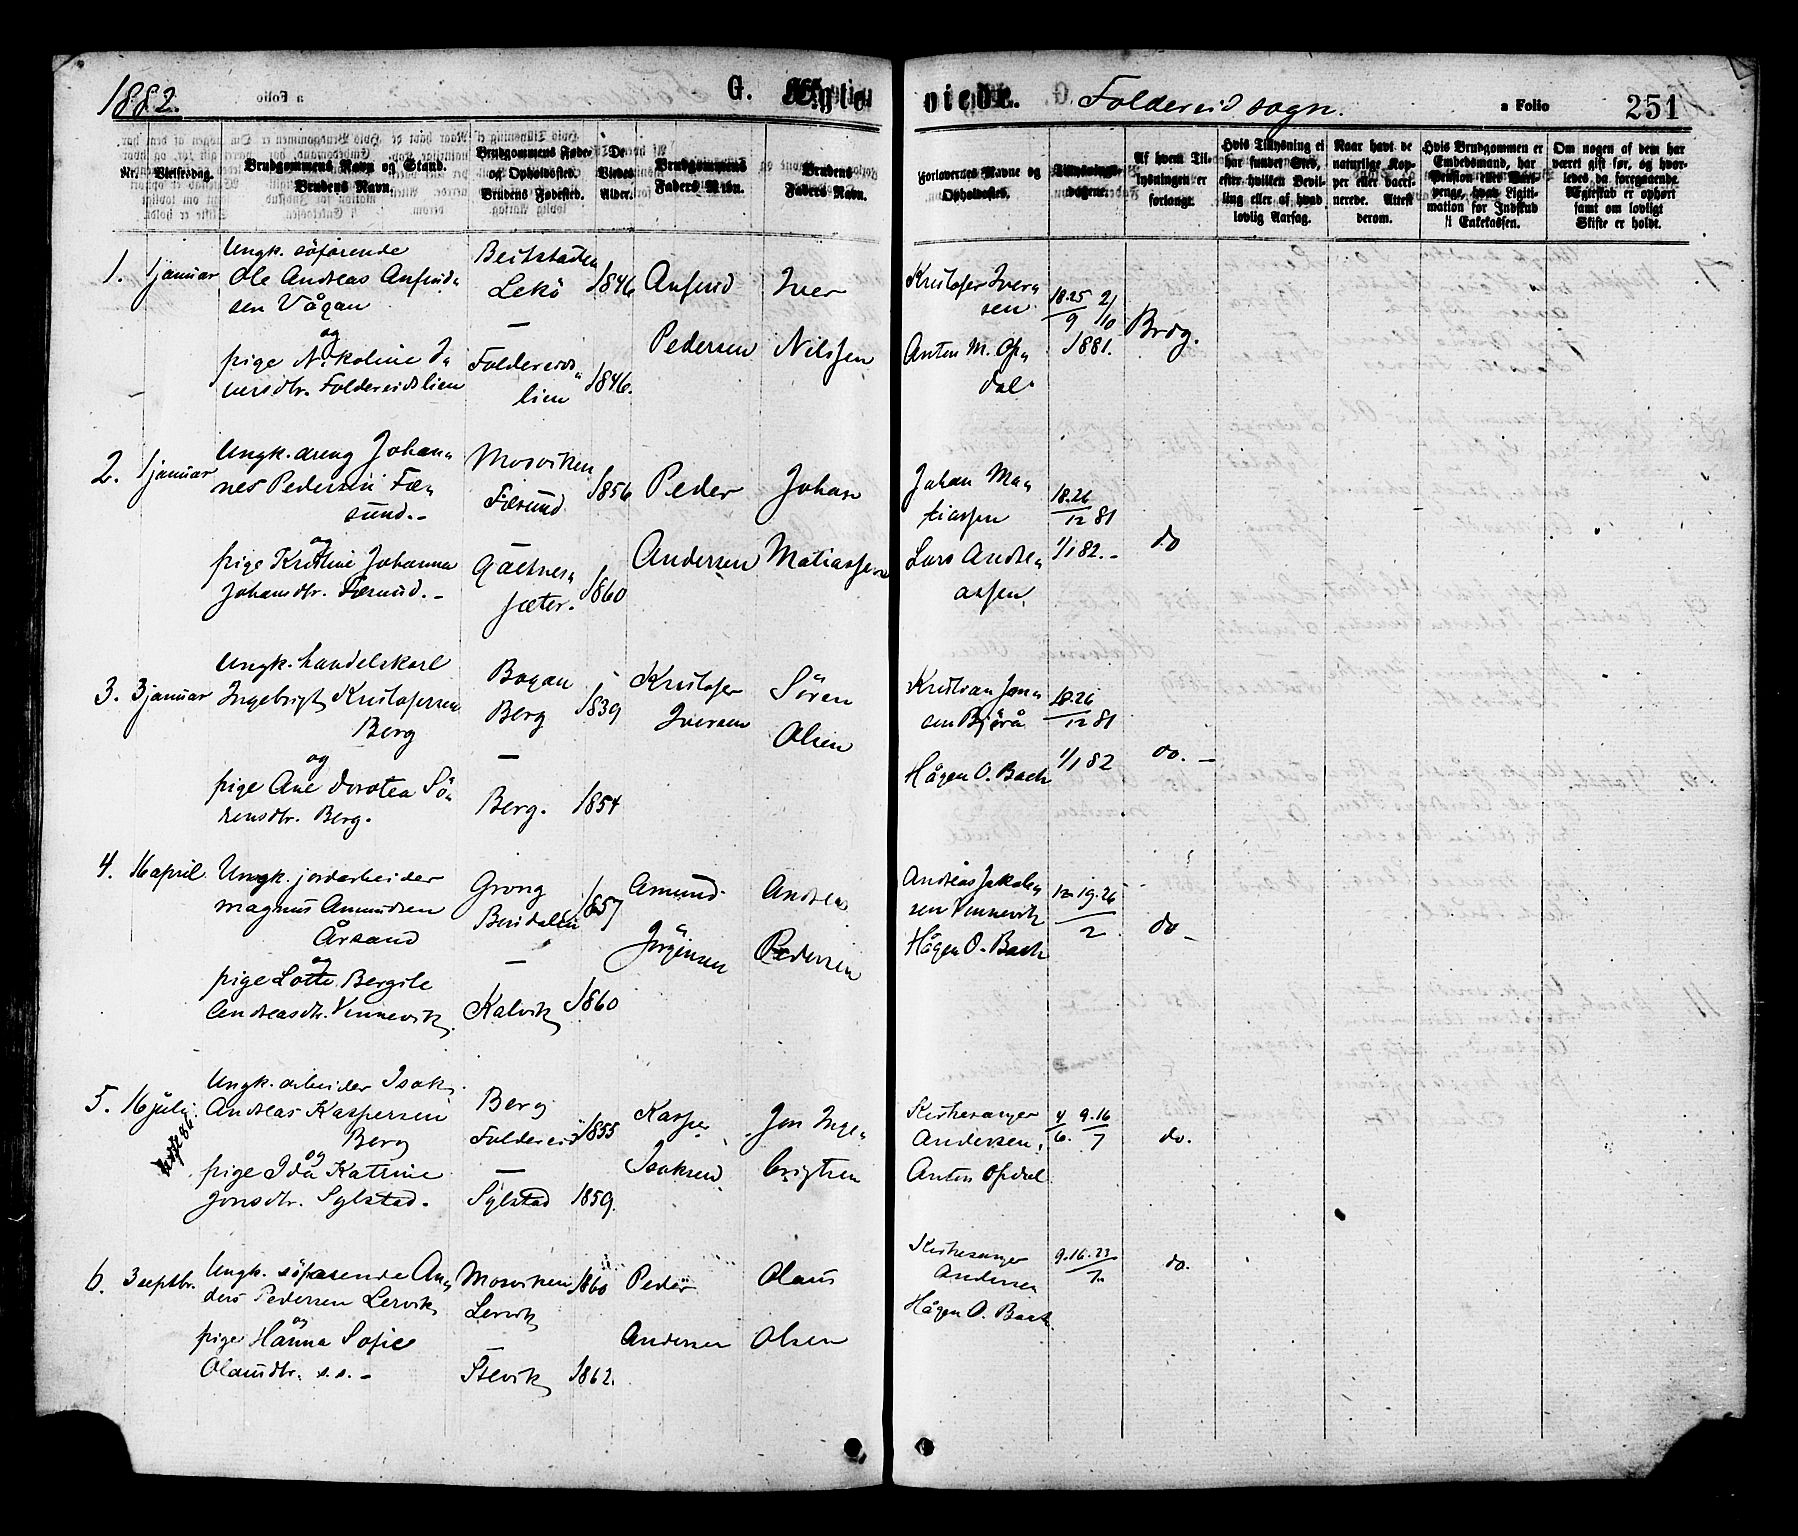 1882. G. Egteviede. Foldereid sogn. a Folio 251
Nr. Vielsesdag. Brudgommens Navn og Stand. Brudens Navn. Brudgommens Føde- og Opholdssted. Brudens Fødested. De Viedes Alder. Brudgommens Faders Navn. Brudens Faders Navn.
Forlovernes Navne og Opholdssted. Tillysningsdagene. Af hvem Tillysningen er forlangt. Hvis Tillysning ei har fundet Sted, efter hvilken Bevilling eller af hvad lovlig Aarsag. Naar havt de naturlige Kopper eller vaccinerede. Attest derom. Hvis Brudgommen er Embedsmand, har Pension eller Vartpenge, hvad Ligitimation for Indskud i Enkekassen. Om nogen af dem har været gift før, og hvorledes da foregaaende Ægteskab er ophørt samt om lovligt Skifte er holdt.
1. 1 januar Ungk. söfarende
Ole Andreas Anfind-
sen Vågan
og
pige Nikoline I-
versdtr. Foldereidslien
Beitstaden
Lekö
—
Foldereids-
lien
1846
1846.
Anfind
Pedersen
Iver
Nilssen
Kristofer Iver-
sen
Anton M. Op-
dal
18.25 2/
9 10
1881.
Brdg.
2. 1 januar Ungk. dreng Johan-
nes Pedersen Fær-
sund.-
og
pige Kristine Johanna
Johansdtr. Færsund.-
Mosviken
Færsund
—
Galtnes-
sæter.
1856
1860
Peder
Andersen
Johan
Matiassen
Johan Ma-
tiassen
Lars Andre-
assen
18.26
12 81
1/1 82.-
do
3. 3 januar Ungk. handelskarl
Ingebrigt Kristofersen
Berg
og
pige Ane Dorotea Sö-
rensdtr. Berg.
Bogan
Berg
—
Berg.
1839
1854
Kristofer
Iversen
Sören
Olsen
Kristian Jon-
sen Bjørå
Hågen O. Bach
18.26
12 81
1/1 82
do. —
4. 16 april. Ungk. jordarbeider
Magnus Amundsen
Årsand
og
pige Lotte Bergite
Andreasdtr. Vennevik
Grong
Bindalen
—
Kalvik
1857
1860
Amund
Jörgensen
Andreas
Pedersen
Andreas Jakob-
sen Vennevik
Hågen O. Bach
12.19.26
2
do -
5. 16 juli Ungk. arbeider Isak
Andreas Kaspersen
Berg
og
pige Ida Katrine
Jonsdtr. Sylstad.
Berg
Foldereid
—
Sylstad
1855
1859.
Kasper
Isaksen
Jon Inge-
brigtsen
Kirkesanger
Andersen,
Anton Opdal
4 9.16
6. 7
do.
6. 3 septbr. Ungk. söfarende An-
ders Pedersen Lervik
og
pige Hanna Sofie
Olausdtr. s.s. -
Mosviken
Lervik
—
Stevik
1860
1862.
Peder
Andersen
Olaus
Olsen
Kirkesanger
Andersen
Hågen O. Bach
9.16.23
7
do.